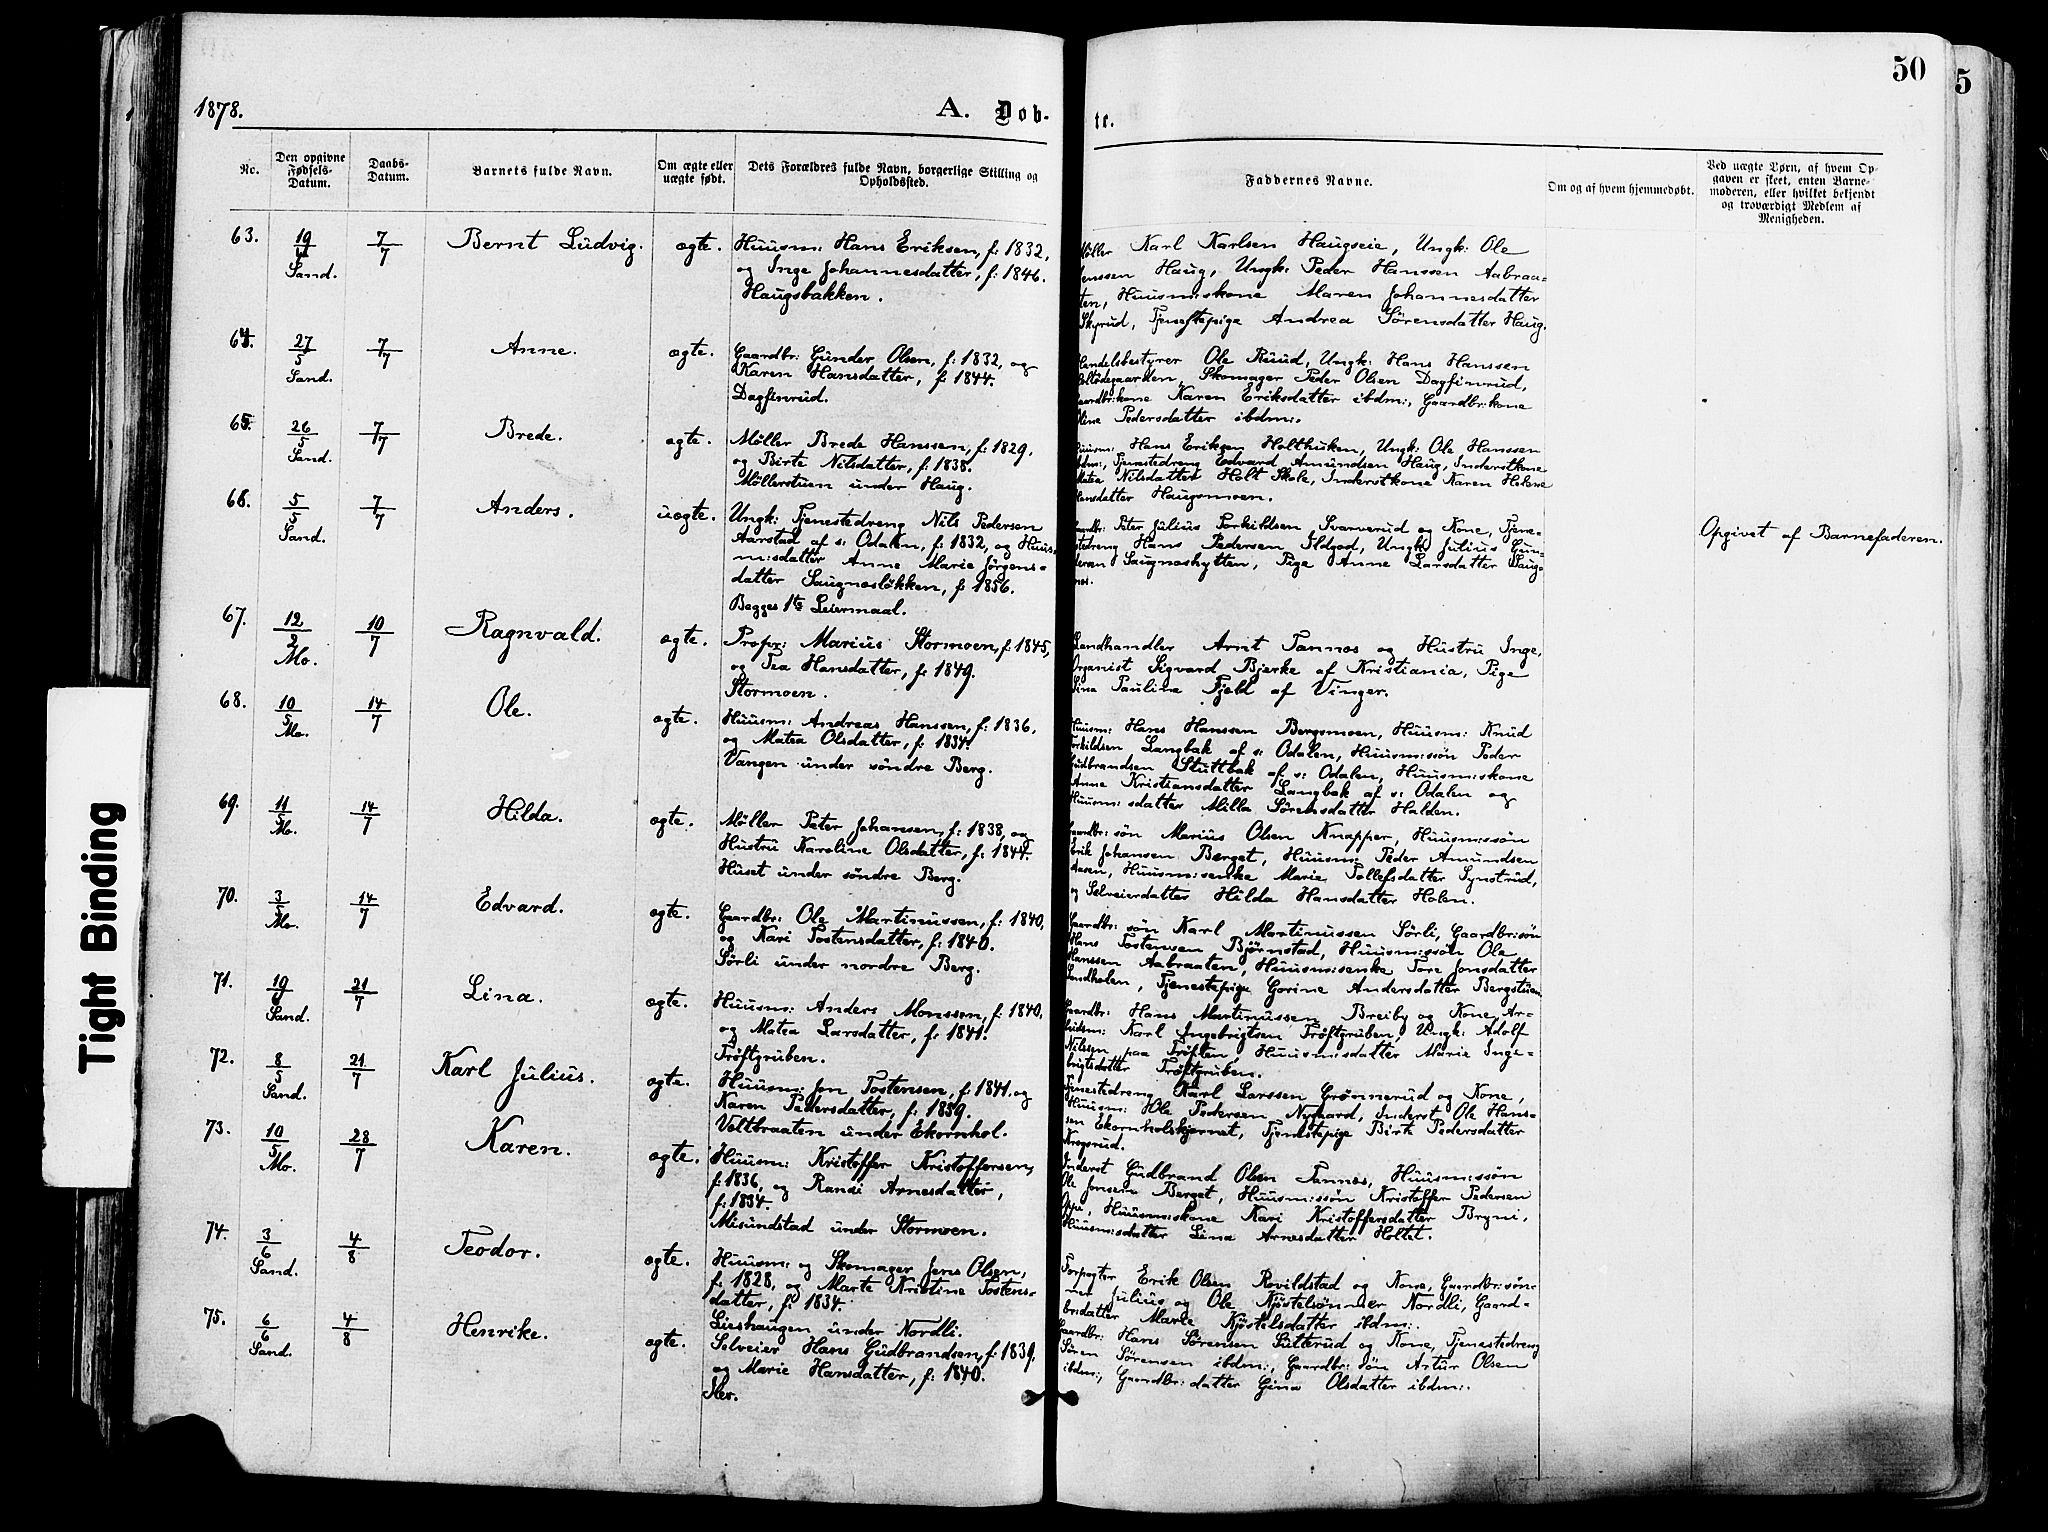 50
5
1878.
A. Døb-
te.
No.
Den opgivne Fødsels-Datum.
Daabs-Datum.
Barnets fulde Navn.
Om ægte eller uægte født.
Dets Forældres fulde Navn, borgerlige Stilling og Opholdssted.
Faddernes Navne.
Om og af hvem hjemmedøbt.
Ved uægte Børn, af hvem Op-
gaven er skeet, enten Barne-
moderen, eller hvilket bekjendt
og troværdigt Medlem af
Menigheden.
63. 19/ Sand. 7/7 Bernt Ludvig. ægte.
Huusm: Hans Eriksen, f: 1832,
og Inge Johannesdatter, f: 1846.
Haugsbakken.
Møller Karl Karlsen Haugseie, Ungk: Ole
Jenssen Haug, Ungk: Peder Hanssen Aabraa-
ten, Huusm:skone Maren Johannesdatter
Skyrud, Tjenestepige Andrea Sørensdatter Haug.
64. 27/5 Sand. 7/7 Anne. ægte.
Gaardbr: Gunder Olsen, f: 1832, og
Karen Hansdatter, f: 1844.
Dagfinrud.
Handelsbestyrer Ole Ruud, Ungk: Hans Hanssen
Skomager Peder Olsen Dagfinrud,
Gaardbr:kone Karen Eriksdatter ibdm:, Gaardbr:kone
Pedersdatter ibdm:.
65. 26/5 Sand. 7/7 Brede. ægte.
Møller Brede Hanssen, f: 1829,
og Birte Nilsdatter, f: 1838.
Møllerstuen under Haug.
Huusm: Hans Eriksen Holthuken, Ungk: Ole Hanssen
ibdm:, Tjenestedreng Edvard Amundsen Haug, Inderstkone
Matea Nilsdatter Holt Skole, Inderstkone Karen Helene
Hansdatter Haugsmoen.
66. 5/5 Sand. 7/7 Anders. uægte.
Ungk: Tjenestedreng Nils Pedersen
Aarstad af s: Odalen, f: 1832, og Huus-
m:sdatter Anne Marie Jørgens-
datter Saugnesløkken, f: 1856.
Begges 1te Leiermaal.
Gaardbr: Peter Julius Torkildsen Svarverud og Kone, Tjene-
stedreng Hans Pedersen Ildgod, Ungk: Julius Gun-
dersen Saugneshytten, Pige Anne Larsdatter Saug-
nes.
Opgivet af Barnefaderen.
67. 12/2 Mo. 10/7 Ragnvald. ægte.
Propr: Marius Stormoen, f: 1845,
og Tea Hansdatter, f: 1849.
Stormoen.
Landhandler Arnt Tannæs og Hustru Inge,
Organist Sigvard Bjerke af Kristiania, Pige
Lina Pauline Fjeld af Vinger.
68. 10/5 Mo. 14/7 Ole. ægte.
Huusm: Andreas Hanssen, f: 1836,
og Matea Olsdatter, f: 1834.
Vangen under søndre Berg.
Huusm: Hans Hanssen Bergsmoen, Huusm: Knud
Torkildsen Langbak af s: Odalen, Huusm:søn Peder
Gudbrandsen Stuttbak af s: Odalen, Huusm:skone
Anne Kristiansdatter Langbak af s: Odalen og
Huusm:sdatter Milla Sørensdatter Halden.
69. 11/5 Mo. 14/7 Hilda. ægte.
Møller Peter Johansen, f: 1838, og
Hustru Karoline Olsdatter, f: 1844.
Huset under søndre Berg.
Gaardbr:søn Marius Olsen Knapper, Huusm:søn
Erik Johansen Berget, Huusm: Peder Amundsen
Huusm:senke Marie Tollefsdatter Synstrud,
og Selveierdatter Hilda Hansdatter Holen.
70. 3/5 Mo. 14/7 Edvard. ægte.
Gaardbr: Ole Martinussen, f: 1840,
og Kari Tostensdatter, f: 1840.
Sørli under nordre Berg.
Gaardbr:søn Karl Martinussen Sørli, Gaardbr:søn
Hans Tostensen Bjørnstad, Huusm:søn Ole
Hanssen Aabraaten, Huusm:senke Tore Jonsdatter
Sandholen, Tjenestepige Gorine Andersdatter Bergstuen.
71. 19/6 Sand. 21/7 Lina. ægte.
Huusm: Anders Monssen, f: 1840,
og Matea Larsdatter, f: 1841.
Trøftgruben.
Gaardbr: Hans Martinussen Breiby og Kone, Ar-
beidsm: Karl Ingebrigtsen Trøftgruben, Ungk: Adolf
Nilsen paa Trøften, Huusm:sdatter Marie Inge-
brigtsdatter Trøftgruben.
72. 8/5 Sand. 21/7 Karl Julius. ægte.
Huusm: Jon Tostensen, f: 1841, og
Karen Pedersdatter, f: 1839.
Veltbraaten under Ekornhol.
Tjenestedreng Karl Larssen Grønnerud og Kone,
Huusm: Ole Pedersen Nygaard, Inderst Ole Hans-
sen Ekornholskjernet, Tjenestepige Birte Pedersdatter
Krogsrud.
73. 10/5 Mo. 28/7 Karen. ægte.
Huusm: Kristoffer Kristoffersen,
f: 1836, og Randi Arnesdatter,
f: 1834.
Misundstad under Stormoen.
Inderst Gudbrand Olsen Tannæs, Huusm:søn
Ole Jonsen Berget, Huusm:søn Kristoffer Pedersen
Oppi, Huusm:skone Kari Kristoffersdatter Bryni,
Huusm:sdatter Lina Arnesdatter Holtet.
74. 3/6 Sand. 4/8 Teodor. ægte.
Huusm: og Skomager Jens Olsen,
f: 1828, og Marte Kristine Tostens-
datter, f: 1834.
Lieshaugen under Nordli.
Forpagter Erik Olsen Rovildstad og Kone, Gaardbr:søn-
ner Julius og Ole Kjøstelsønner Nordli, Gaard-
br:datter Marte Kjøstelsdatter ibdm:.
75. 6/6 Sand. 4/8 Henrike. ægte.
Selveier Hans Gudbrandsen, f: 1839,
og Marie Hansdatter, f: 1840.
Næs.
Gaardbr: Hans Sørensen Sutterud og Kone, Tjenestedreng
Søren Sørensen ibdm:, Gaardbr:søn Artur Olsen
ibdm:, Gaardbr:datter Gina Olsdatter ibdm:.
Tight Binding